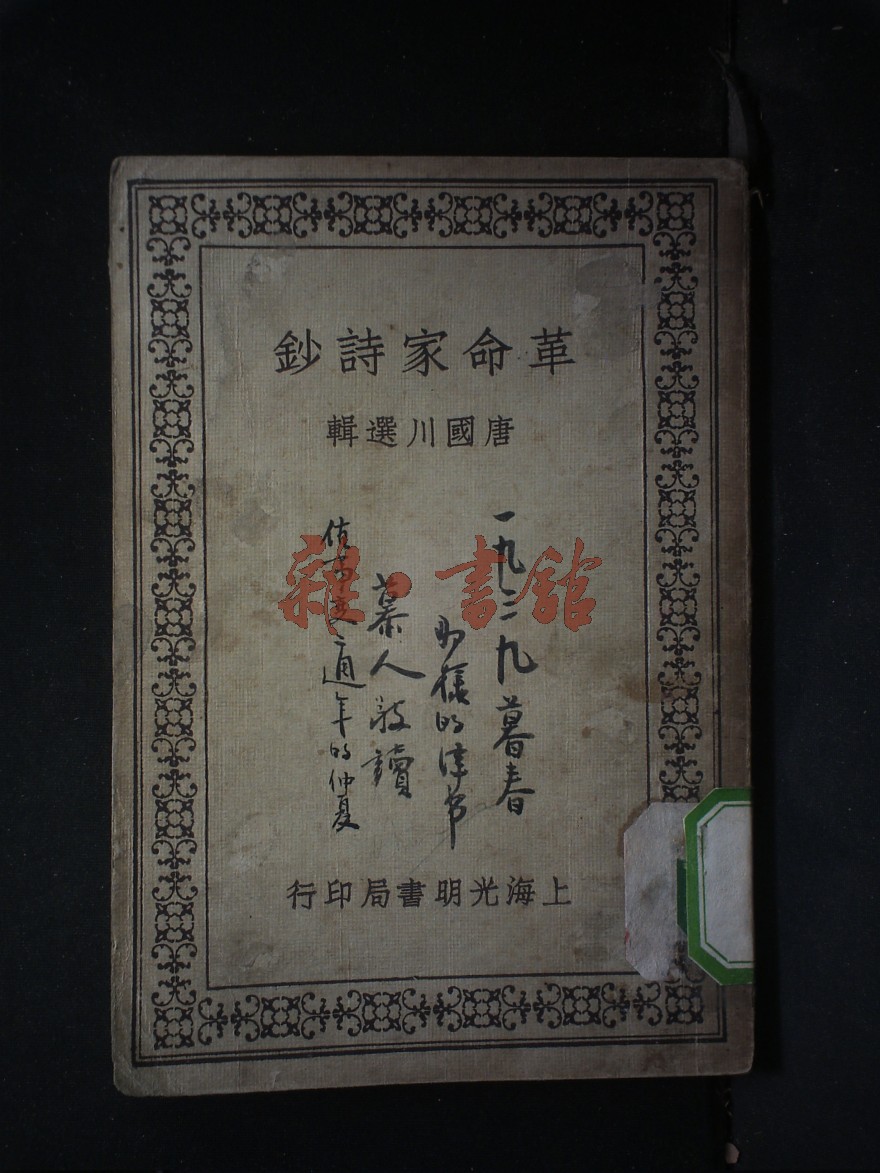 革命家詩鈔
唐國川選輯
一九三九暮春
購
慕人敬讀
年的仲夏
雜·書館
上海光明書局印行